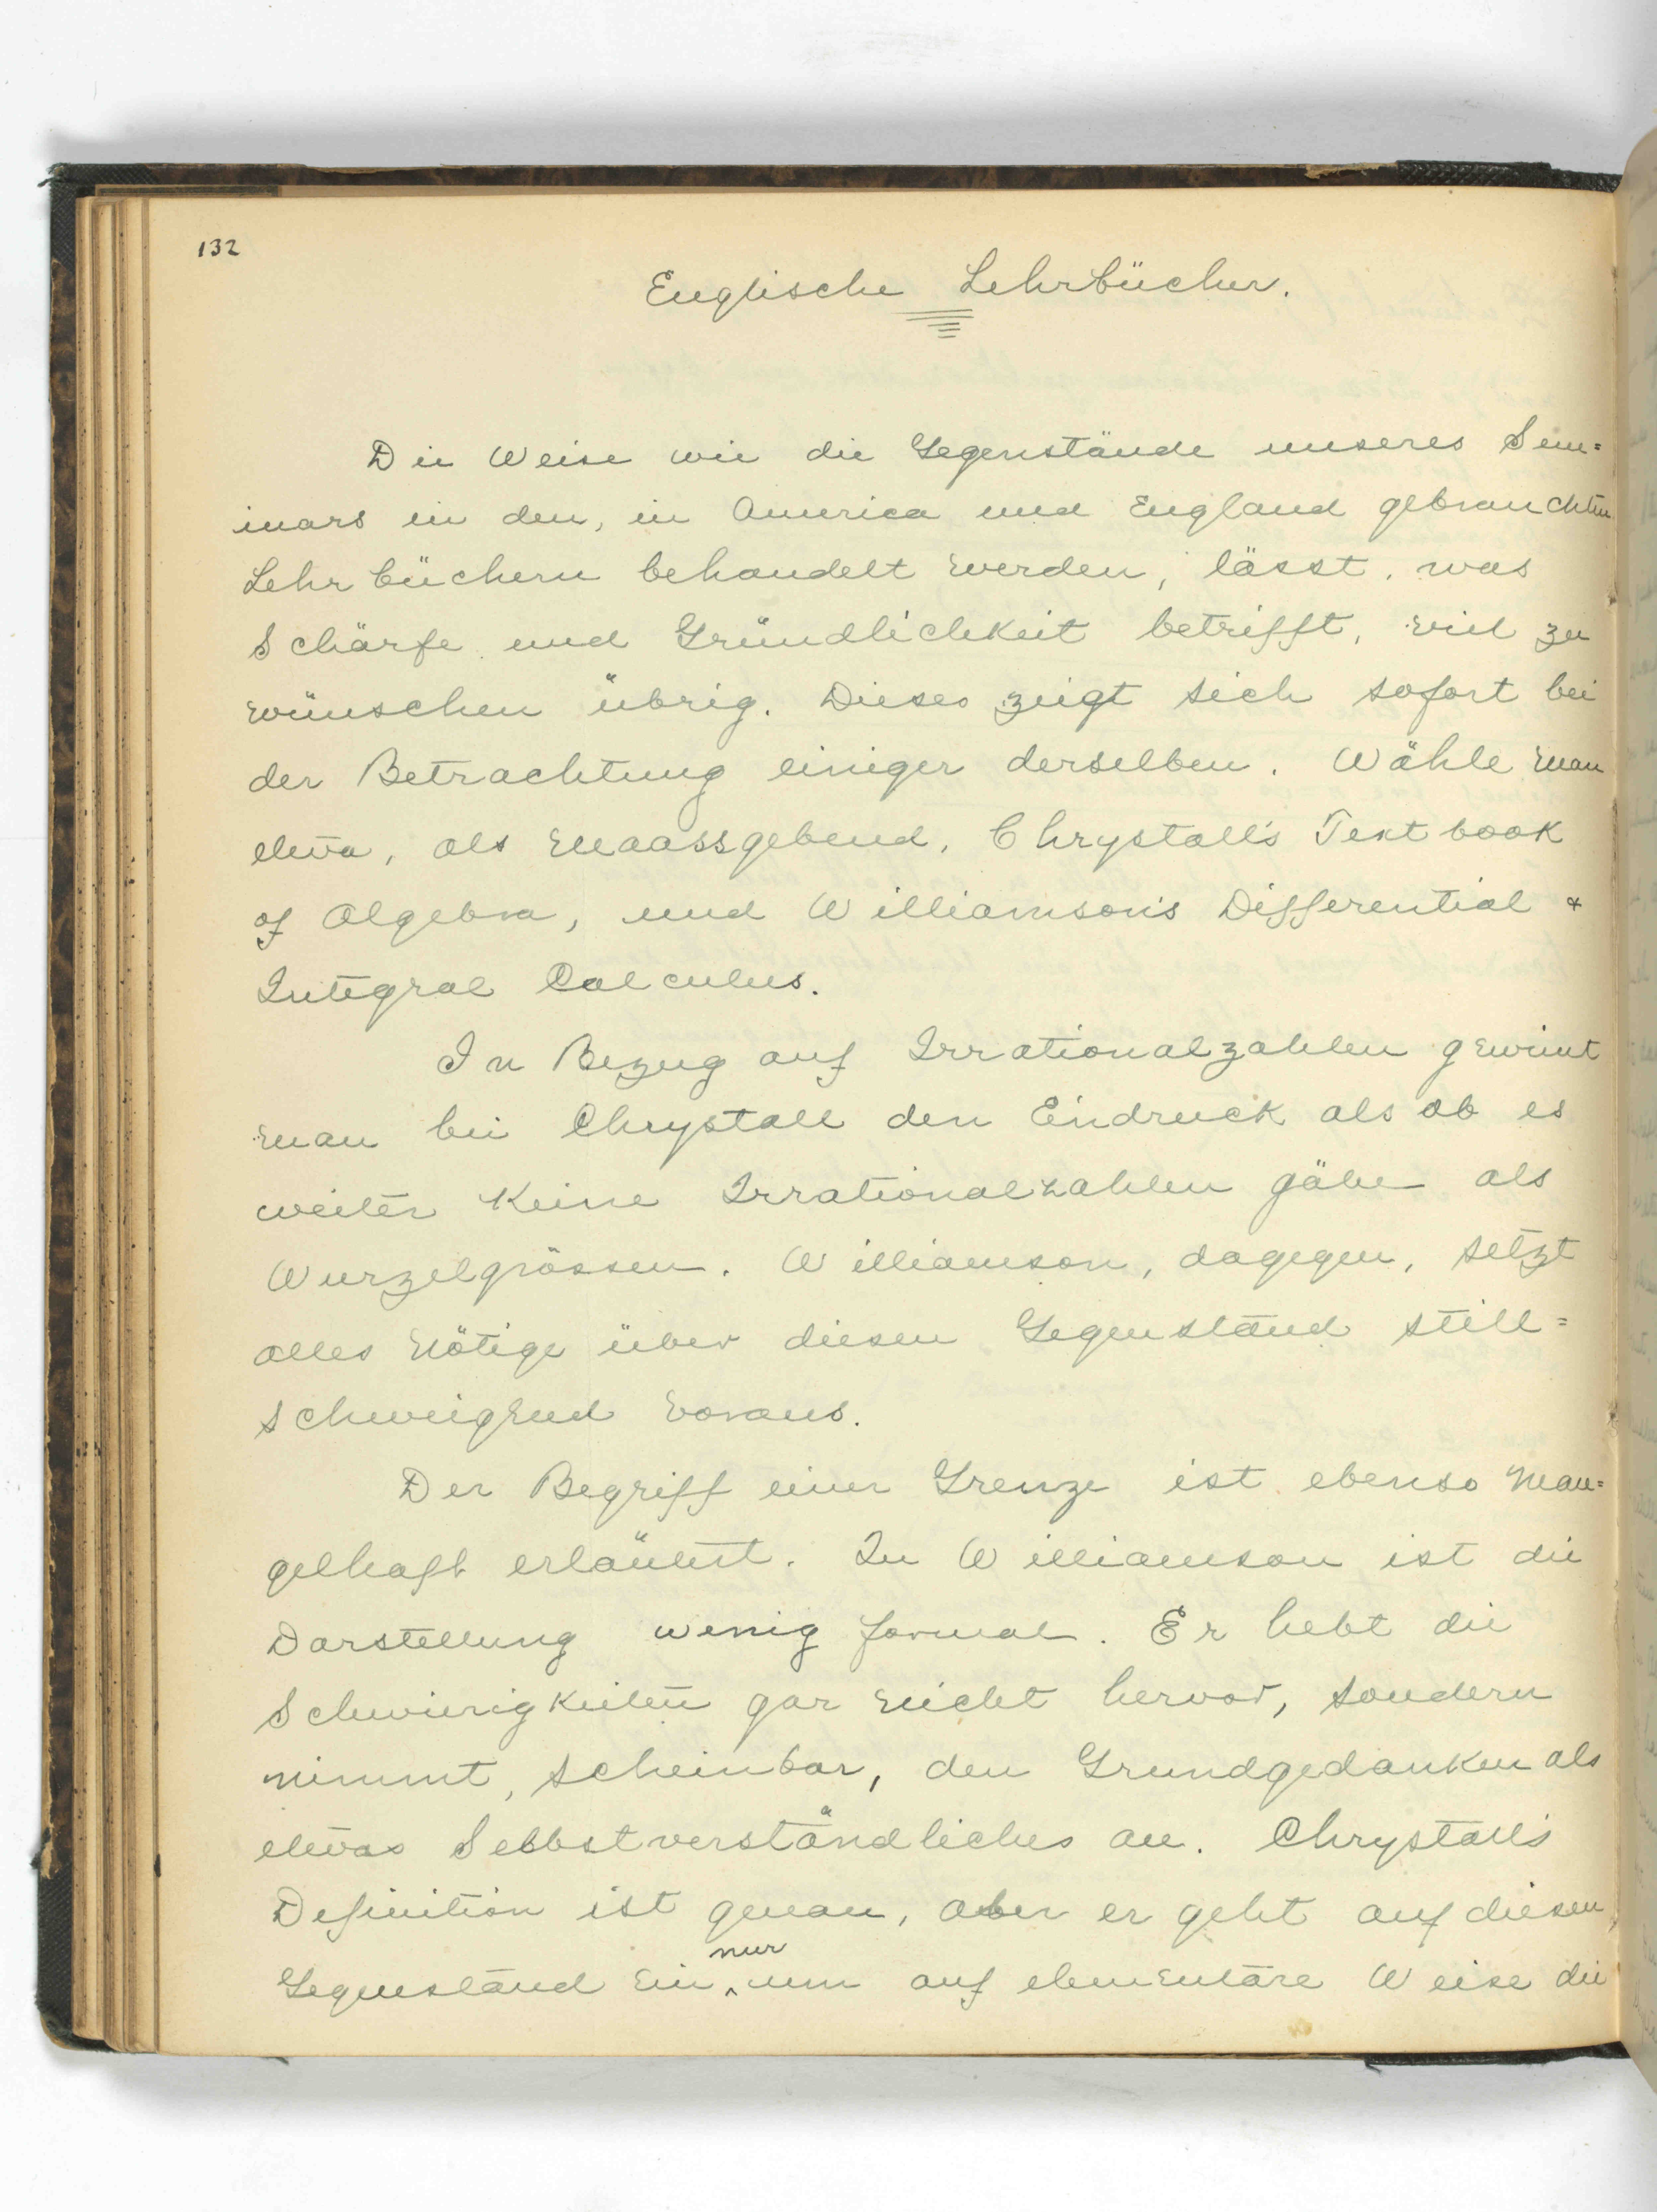 132
Englische Lehrbücher.
Die Weise wie die Gegenstände unseres Sem=
inars in den, in America und England gebrauchten
Lehrbüchern behandelt werden, lässt, was
Schärfe und Gründlichkeit betrifft, viel zu
wünschen übrig. Dieses zeigt sich sofort bei
der Betrachtung einiger derselben. Wähle man
etwa, als maassgebend, Chrystall's Textbook
of Algebra, und Williamson's Differential &
Integral Calculus.
In Bezug auf Irrationalzahlen gewint
man bei Chrystall den Eindruck als ob es
weiter keine Irrationalzahlen gäbe als
Wurzelgrössen. Williamson, dagegen, setzt
alles nötige über diesen Gegenstand still=
schweigend voraus.
Der Begriff einer Grenze ist ebenso man=
gelhaft erläutert. In Williamson ist die
Darstellung wenig formal. Er hebt die
Schwierigkeiten gar nicht hervor, sondern
nimmt, scheinbar, den Grundgedanken als
etwas Selbstverständliches an. Chrystall's
Definition ist genau, aber er geht auf diesen
Gegenstand ein nur um auf elementäre Weise die